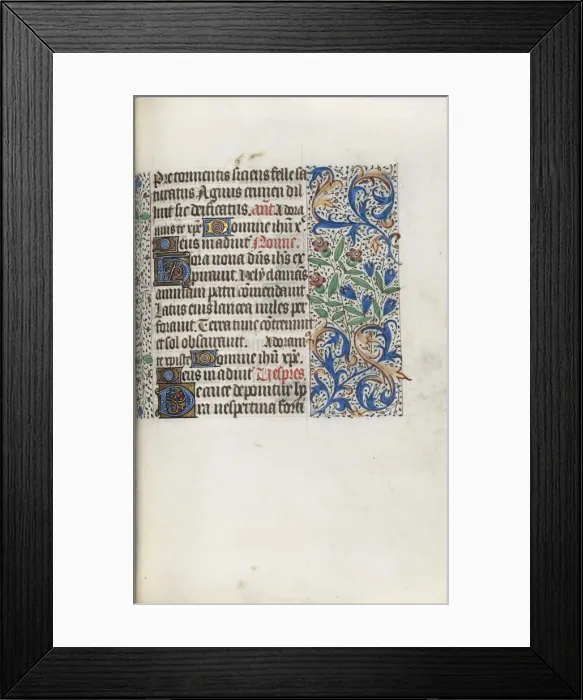 Pre tormentis siciens felle sa
turatus. Agnus crimen dil
uit sic deificatus. añt. Adora
mus te xp̄e Domine ihū x̄
Deus in adiut̄ Nonne.
Hora nona dn̄s ihs̄ ex
pirauit. Hely clamās
animam patri cōmendauit.
Latus eius lancea miles per
forauit. Terra tunc cōtremuit
et sol obscurauit. Adoram
te xpiste Domine ihū xp̄e.
Deus in adiut̄ Vespres
De cruce deponitur ho
ra uespertina forti